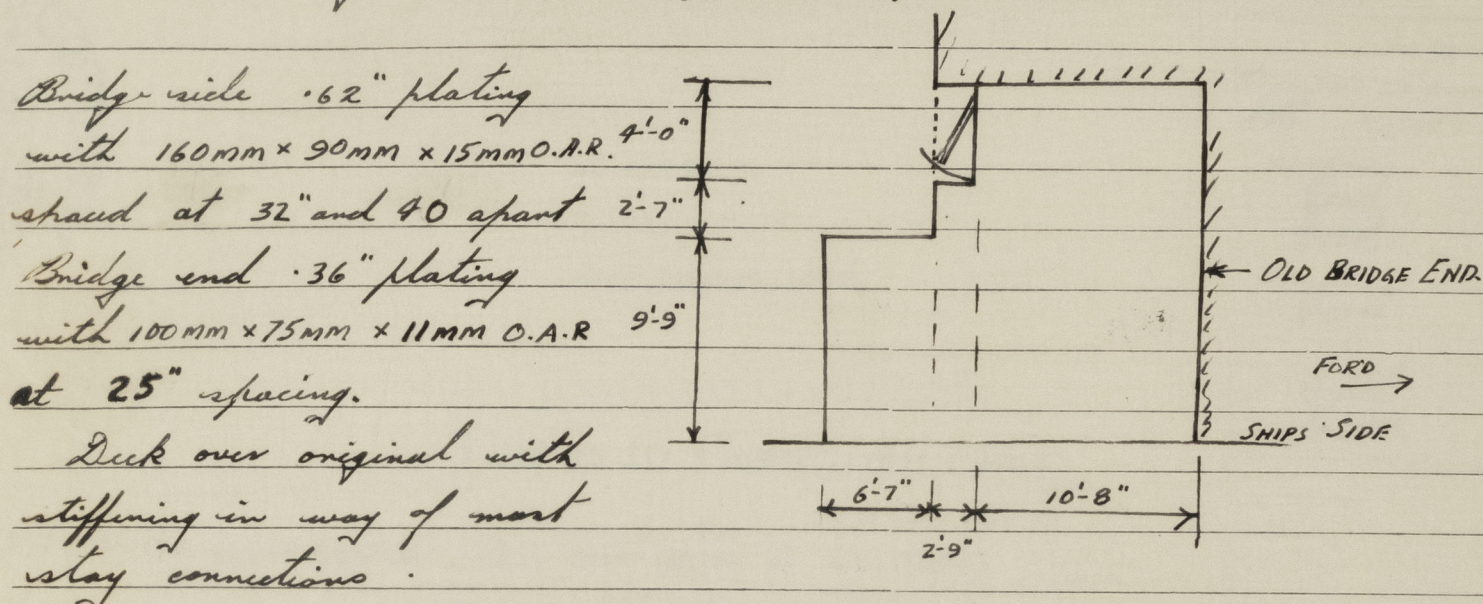 Bridge side .62" plating
with 160mm × 90mm × 15mm O.A.R.
spaced at 32" and 40 apart
Bridge end .36" plating
with 100mm × 75mm × 11mm O.A.R
at 25" spacing.
Deck over original with
stiffening in way of mast
stay connections.
4'-0"
2'-7"
9'-9"
OLD BRIDGE END.
FOR'D
SHIPS SIDE
6'-7"
2'-9"
10'-8"